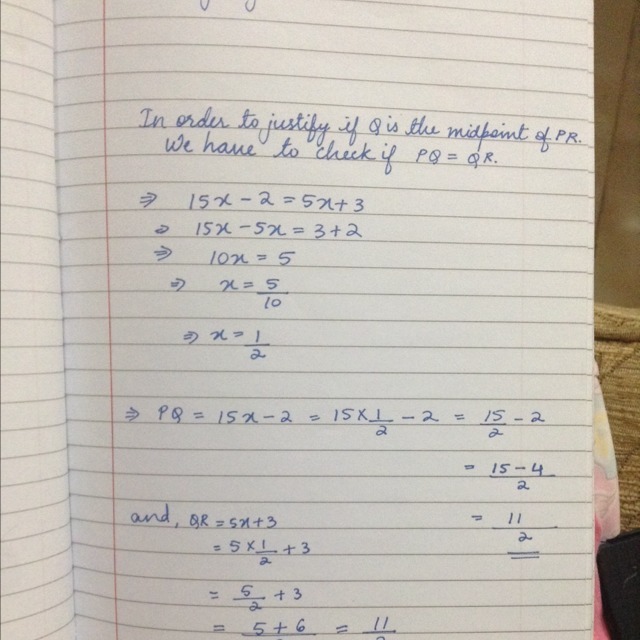 In order to justify if Q is the midpoint of PR.
We have to check if PQ = QR.
⇒ 15x - 2 = 5x+3
⇒ 15x - 5x = 3+2
⇒ 10x = 5
⇒ x = 5/10
⇒ x = 1/2
⇒ PQ = 15x - 2 = 15 × 1/2 - 2 = 15/2 - 2
= 15-4/2
= 11/2
and, QR = 5x+3
= 5 × 1/2 + 3
= 5/2 + 3
= 5+6 = 11